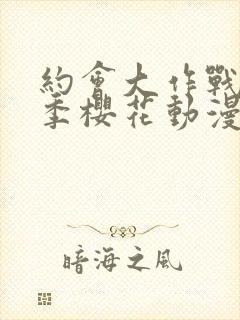 約會大作戰
季櫻花動漫
暗海之風